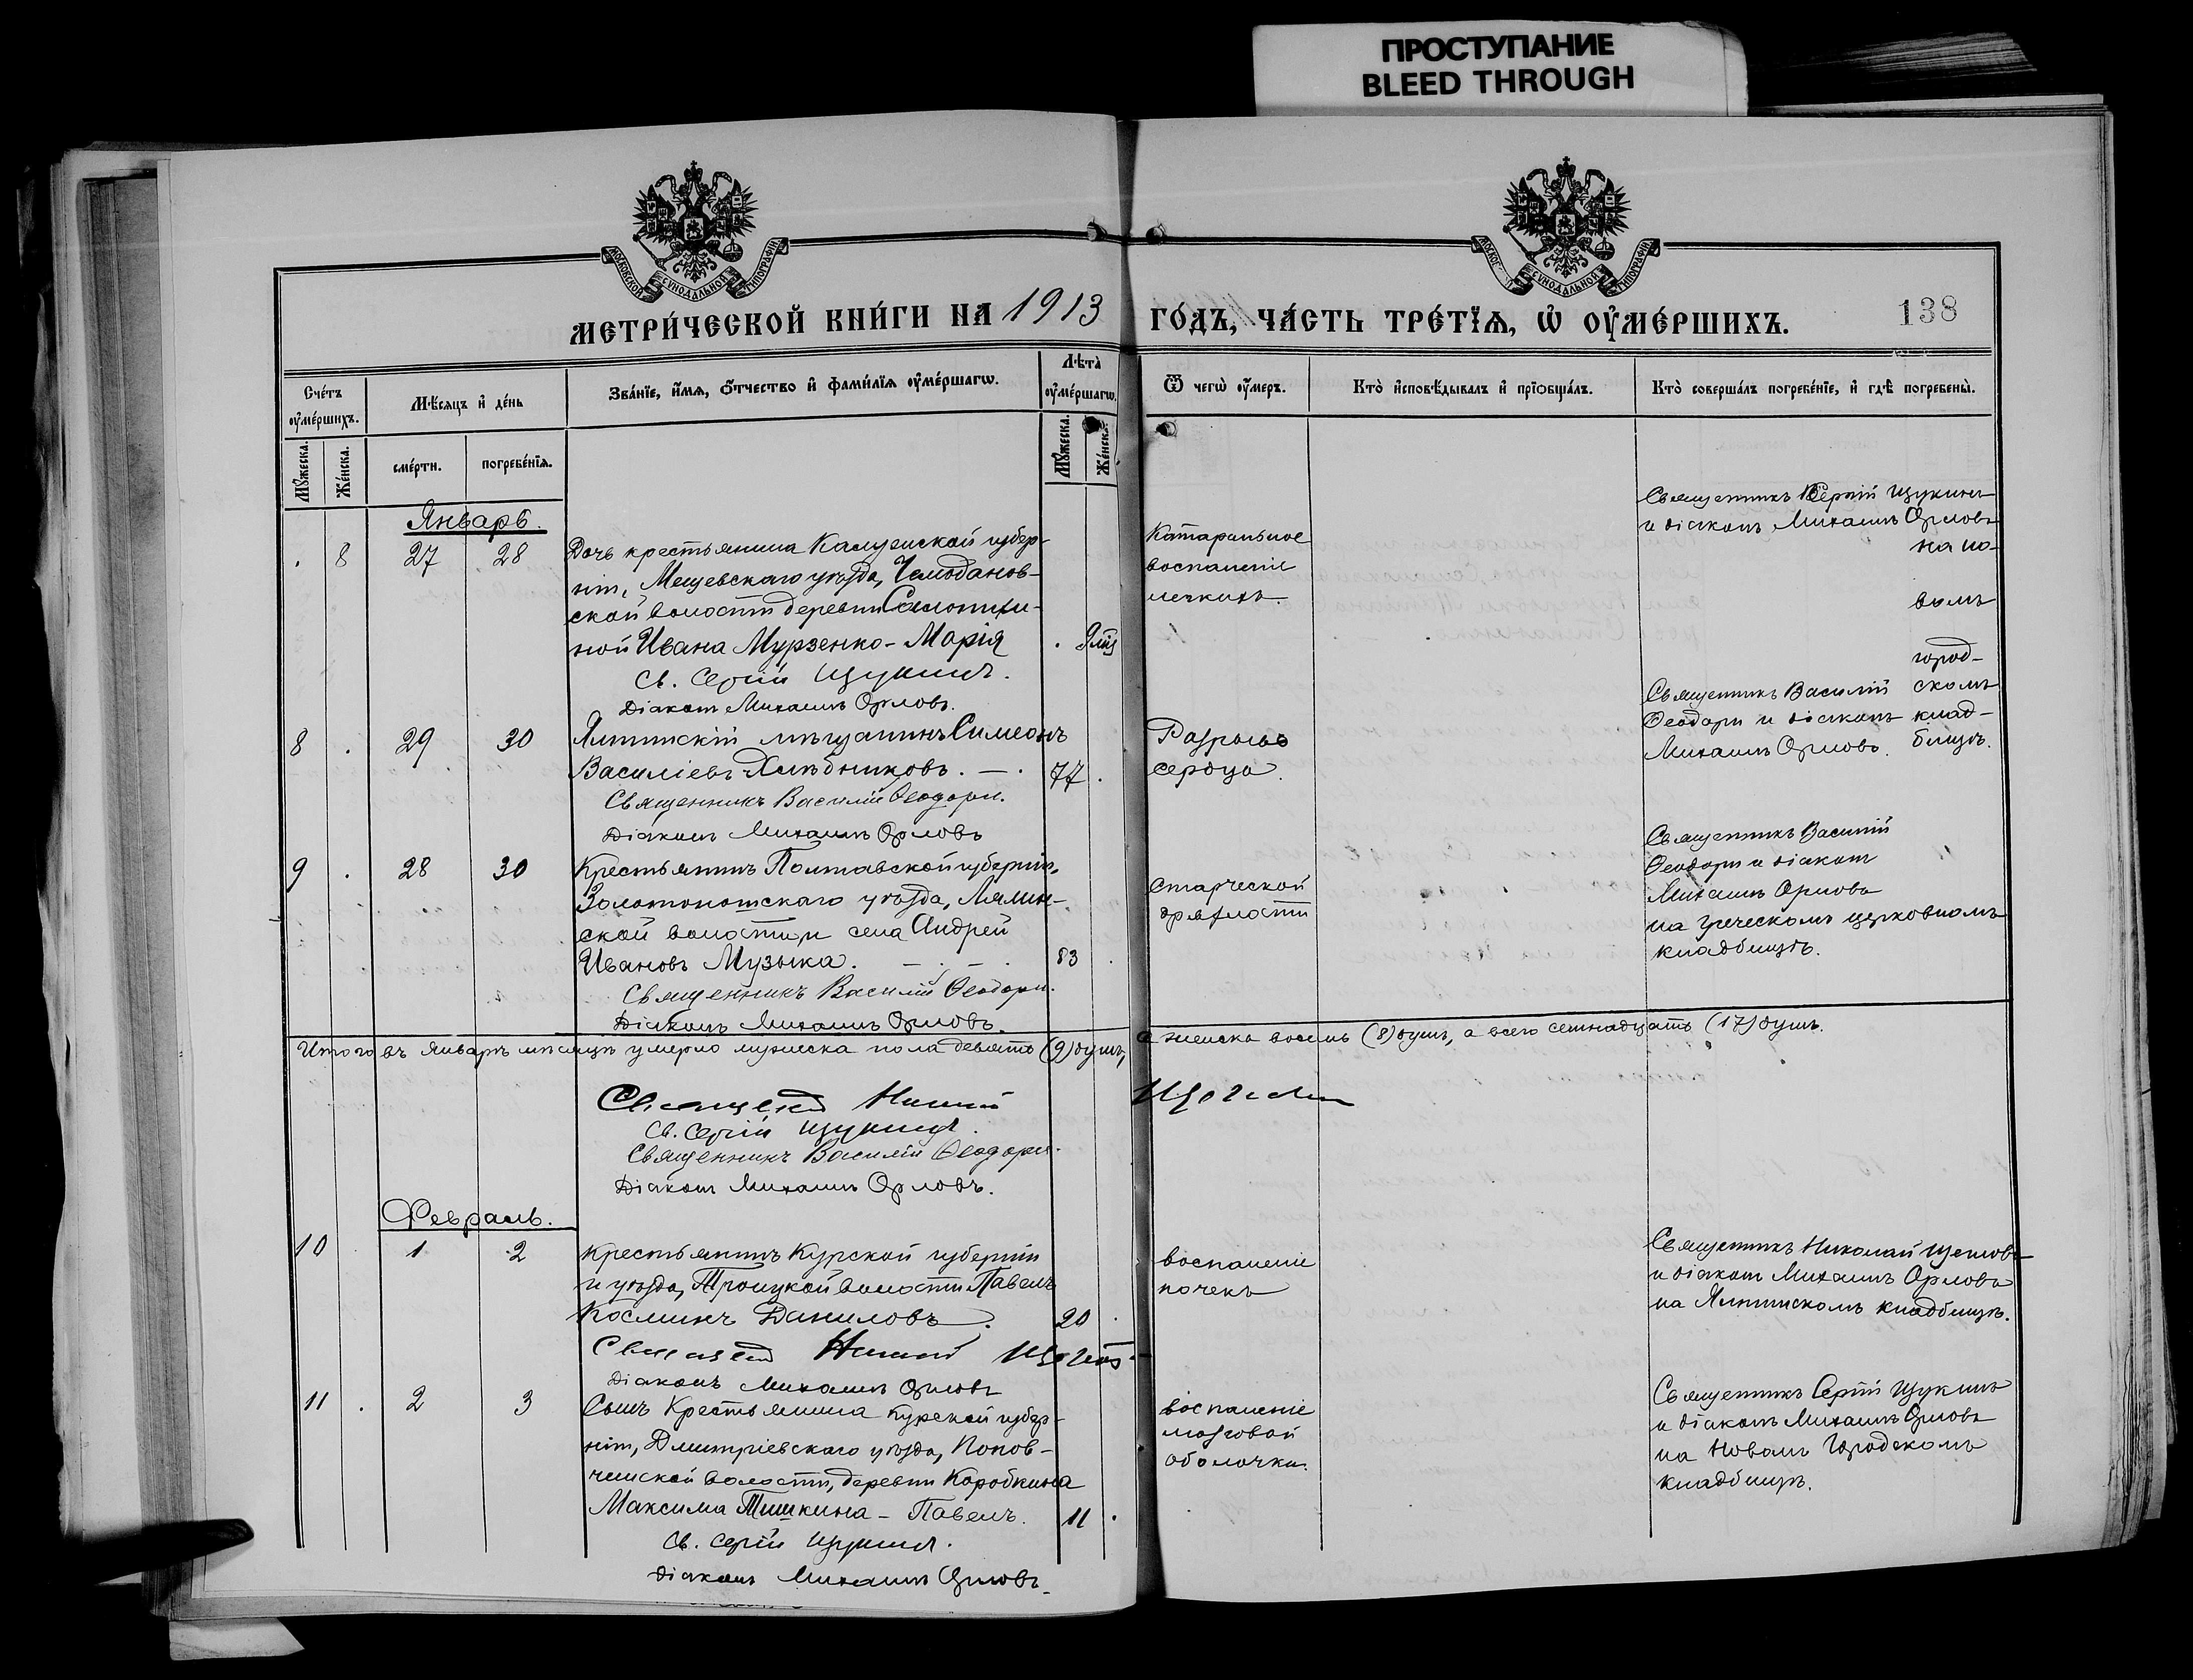 ПРОСТУПАНИЕ
BLEED THROUGH
МОСКОВСКОЙ СѴНОДАЛЬНОЙ ТИПОГРАФІИ
СѴНОДАЛЬНОЙ ТИПОГРАФІИ
МЕТРИ́ЧЕСКОЙ КНИ́ГИ НА 1913 ГО́ДЪ, ЧА́СТЬ ТРЕ́ТЇѦ, Ѡ҆ ОУ҆МЕ́РШИХЪ.
138
Сче́тъ оу҆ме́ршихъ.
Мѣ́сѧцъ и҆ де́нь
Зва́нїе, и҆́мѧ, ѻ҆́тчество и҆ фами́лїѧ оу҆ме́ршагѡ.
Лѣта̀ оу҆ме́ршагѡ.
Ѿ чегѡ̀ оу҆́меръ.
Кто̀ и҆сповѣ́дывалъ и҆ прїѻбща́лъ.
Кто̀ соверша́лъ погребе́нїе, и҆ гдѣ̀ погребены̀.
Мꙋ́жеска.
Же́нска.
сме́рти.
погребе́нїѧ.
Мꙋ́жеска.
Же́нска.
Январь.
. 8 27 28
Дочь крестьянина Калужской губер-
ніи, Мещевскаго уѣзда, Чемоданов-
ской волости деревни
ной Ивана Мурзенко - Марія . 9 мѣс
Св. Сергій Щукинъ.
Діаконъ Михаилъ Орловъ.
Катаральное
воспаленіе
легкихъ.
Священникъ Сергій Щукинъ
и діаконъ Михаилъ Орловъ
на но-
вомъ
город-
скомъ
клад-
бищѣ.
8 . 29 30
Ялтинскій мѣщанинъ Симеонъ
Васильевъ Хлѣбниковъ. — . 77 .
Священникъ Василій Ѳеодори.
Діаконъ Михаилъ Орловъ
Разрывъ
сердца.
Священникъ Василій
Ѳеодори и діаконъ
Михаилъ Орловъ.
9 . 28 30
Крестьянинъ Полтавской губерніи,
Золотоношскаго уѣзда, Лялин-
ской волости и села Андрей
Ивановъ Музыка. — . — . 83 .
Священникъ Василій Ѳеодори.
Діаконъ Михаилъ Орловъ.
старческой
дряхлости
Священникъ Василій
Ѳеодори и діаконъ
Михаилъ Орловъ
на Греческомъ церковномъ
кладбищѣ.
Итого въ Январѣ мѣсяцѣ умерло мужеска пола девять (9) душъ, а женска восемь (8) душъ, а всего семнадцать (17) душъ.
Св. Сергій Щукинъ.
Священникъ Василій Ѳеодори.
Діаконъ Михаилъ Орловъ.
Февраль.
10 . 1 2
Крестьянинъ Курской губерніи
и уѣзда, Троицкой волости Павелъ
Косминъ Даниловъ . 20 .
Діаконъ Михаилъ Орловъ
воспаленіе
почекъ
Священникъ Николай Щегловъ
и діаконъ Михаилъ Орловъ
на Ялтинскомъ кладбищѣ.
11 . 2 3
Сынъ Крестьянина Курской губер-
ніи, Дмитріевскаго уѣзда, Попов-
чинской волости, деревни Коробкина
Максима Тишкина - Павелъ. 11 .
Св. Сергій Щукинъ.
Діаконъ Михаилъ Орловъ.
воспаленіе
мозговой
оболочки.
Священникъ Сергій Щукинъ
и діаконъ Михаилъ Орловъ
на Новомъ Городскомъ
кладбищѣ.